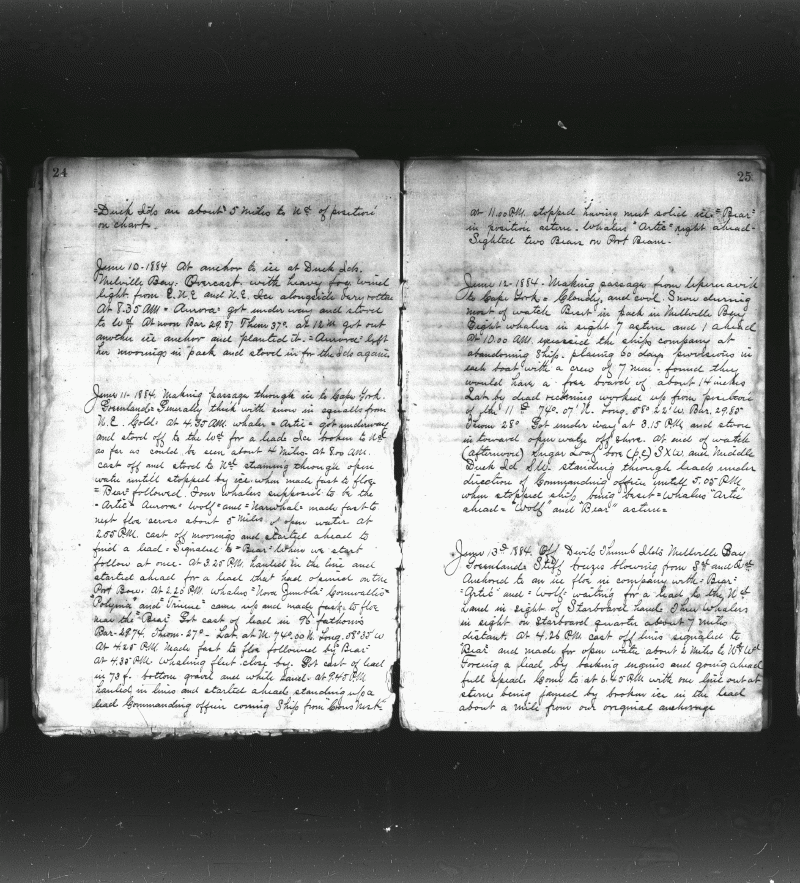 24
"Duck Ids are about 5 miles to Nd of position
on chart.
June 10-1884 At anchor to ice at Duck Ids.
Melville Bay. Overcast with heavy fog wind
light from E.N.E and N.E. Ice alongside very rotten
At 8.35 AM "Aurora" got underway and stood
to Wd At noon Bar 29.87 Ther 37° at 12 M got out
another ice anchor and planted it. "Aurora" left
her moorings in pack and stood in for the Ids again.
June 11-1884. Making passage through ice to Cape York
Greenland. Generally thick with snow in squalls from
N.E. Cold. At 4.30 AM whaler "Artic" got underway
and stood off to the Wd for a lead Ice broken to Nd
as far as could be seen about 4 miles. At 8.00 AM.
cast off and stood to Nd steaming through open
water untill stopped by ice when made fast to floe
"Bear" followed. Four whalers supposed to be the
"Artic" Aurora "Wolf" and "Narwhal" made fast to
next floe across about 5 miles of open water at
2.00 P.M. cast off moorings and started ahead to
find a lead. Signaled to "Bear" When we start
follow at once. At 3.25 P.M. hauled in the line and
started ahead for a lead that had opened on the
Port Bow. At 2.25 P.M. Whalers "Nova Zembla" Cornwallis
"Polynia" and "Triune" came up and made fast to floe
near the "Bear" Got cast of lead in 96 fathoms
Bar-29.74. Thom-27°- Lat. at M. 74°.00 N. Long. 58° 35' W
At 4.25 P.M. Made fast to floe followed by "Bear"
At 4.35 P.M. Whaling fleet close by. Got cast of lead
in 73 f. bottom gravel and white sand. At 9.45 P.M.
hauled in lines and started ahead standing up a
lead Commanding officer conning Ship from Crows Nest
25
At 11.00 P.M. stopped having met solid ice. "Bear"
in position astern. Whaler "Artic" right ahead-
Sighted two Bears on Port Beam-
June 12-1884. Making passage from Upernavik
to Cape York. Cloudy, and cool. Snow during
most of watch Beset in pack in Melville Bay
Eight whalers in sight 7 astern and 1 ahead
At 10.00 AM. exercised the ships company at
abandoning ship. placing 60 days provisions in
each boat with a crew of 7 men. found they
would have a free board of about 14 inches
Lat by dead reckoning worked up from position
of the 11th 74°. 07' N. Long. 58° 22' W. Bar. 29.85
Thom 28° Got under way at 3.15 P.M. and stood
in toward open water off shore. At end of watch
(afternoon) Sugar Loaf bore (p.c) S x W. and Middle
Duck Id S.W. standing through leads under
direction of Commanding officer untill 5.05 P.M.
when stopped ship being beset-Whalers "Artic"
ahead "Wolf" and "Bear" astern-
June 13th 1884. Off Devils Thumb Ids Melville Bay
Greenland. Stiff breeze blowing from Sd and Ed.
Anchored to an ice floe in company with "Bear"
"Artic" and "Wolf" waiting for a lead to the Nd
Land in sight of Starboard hand. Three Whalers
in sight on Starboard quarter about 7 miles
distant. At 4.26 P.M. cast off lines signaled to
"Bear" and made for open water about 2 miles to Nd Wd
Forcing a lead by backing engines and going ahead
full speed. Come to at 6.45 P.M. with one line out at
stern being jammed by broken ice in the lead
about a mile from our original anchorage